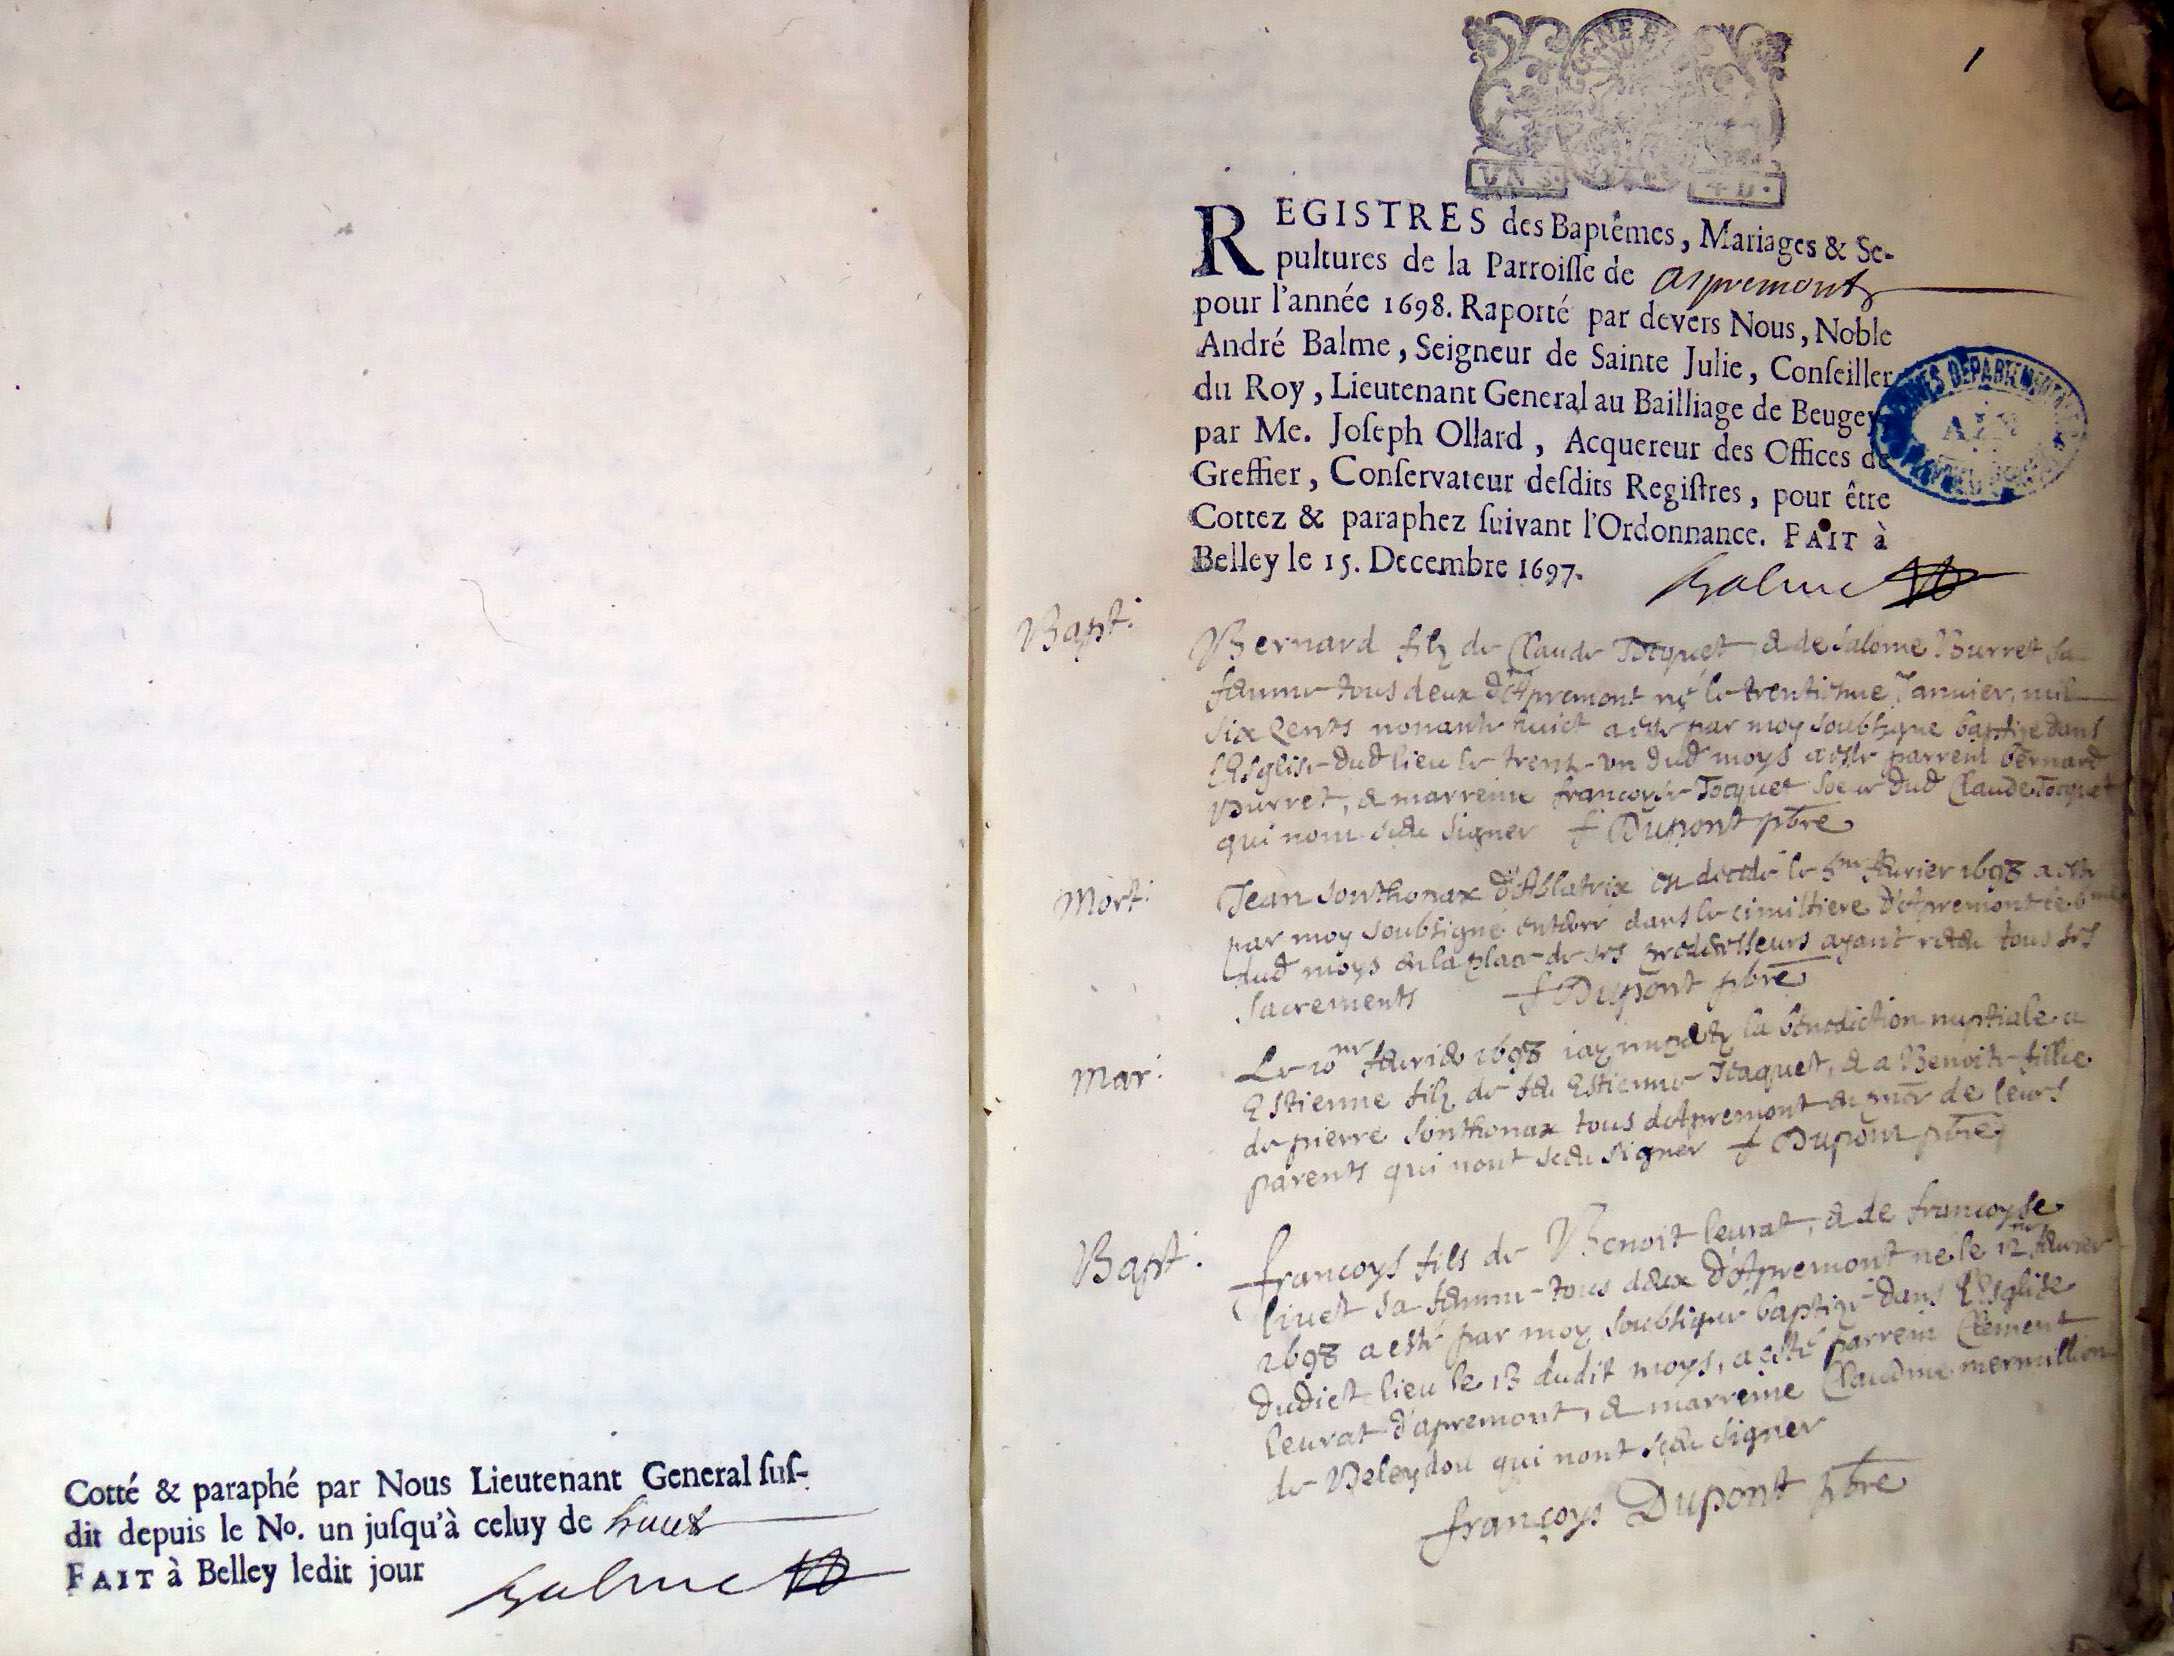 Cotté & paraphé par Nous Lieutenant General suſ-
dit depuis le No. un juſqu'à celuy de huict
FAIT à Belley ledit jour
Balme
1
UN S. 4 D.
REGISTRES des Baptêmes, Mariages & Se-
pultures de la Parroiſſe de aspremont
pour l'année 1698. Raporté par devers Nous, Noble
André Balme, Seigneur de Sainte Julie, Conſeiller
du Roy, Lieutenant General au Bailliage de Beugey
par Me. Joſeph Ollard, Acquereur des Offices de
Greffier, Conſervateur deſdits Regiſtres, pour être
Cottez & paraphez ſuivant l'Ordonnance. FAIT à
Belley le 15. Decembre 1697.
Balme
ARCHIVES DEPARTEMENTALES
AIN
Bapt:
Bernard filz de Claude Tocquet, & de Salome Burret sa
femme tous deux d'Apremont né le trentiesme Janvier, mil
six Cents nonante huict a este par moy soubsigne baptize dans
l'Esglise dud lieu le trente un dud moys a este parrein bernard
Burret, & marreine francoyse Tocquet soeur dud Claude Tocquet
qui nont sceu signer f Dupont pbre
Mort:
Jean Sonthonax d'Ablatrix est decedé le 5me febvrier 1698 a este
par moy soubsigné enterré dans le cimittiere d'Apremont le 6me
dud moys en la place de ses predecesseurs ayant receu tous ses
sacrements f Dupont pbre
Mar:
Le 10me febvrier 1698 iay la bénédiction nuptiale a
Estienne filz de feu Estienne Tocquet, & a Benoite fillie
de pierre Sonthonax tous d'Apremont de leurs
parents qui nont sceu signer f Dupont pbre
Bapt:
francoys fils de Benoit leurat, & de francoyse
livet sa femme tous deux d'Apremont né le 12me febvrier
1698 a esté par moy soubsigné baptizé dans l'Esglise
dudict lieu le 13 dudit moys, a esté parrein Clement
leurat d'apremont, & marreine Claudine mermillion
de Beleydou qui nont sceu signer
françoys Dupont pbre